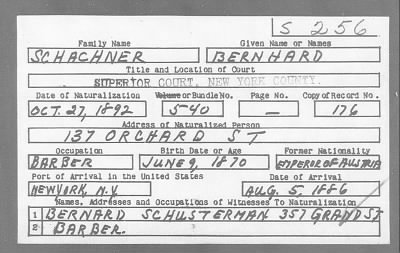 S 256
Family Name Given Name or Names
SCHACHNER BERNHARD
Title and Location of Court
SUPERIOR COURT, NEW YORK COUNTY.
Date of Naturalization Volume or Bundle No. Page No. Copy of Record No.
OCT. 27, 1892 540 — 176
Address of Naturalized Person
137 ORCHARD ST
Occupation Birth Date or Age Former Nationality
BARBER JUNE 9, 1870 EMPEROR OF AUSTRIA
Port of Arrival in the United States Date of Arrival
NEW YORK, N.Y. AUG. 5, 1886
Names, Addresses and Occupations of Witnesses To Naturalization
1 BERNARD SCHUSTERMAN 357 GRAND ST
2 BARBER.